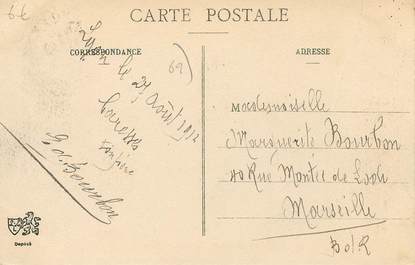 6€
CARTE POSTALE
CORRESPONDANCE
ADRESSE
69
Lyon le 27 Août 1912
Caresses
G. de Bourbon
Mademoiselle
Marguerite Bourbon
40 Rue Montée de Lodi
Marseille
B d R
Déposé